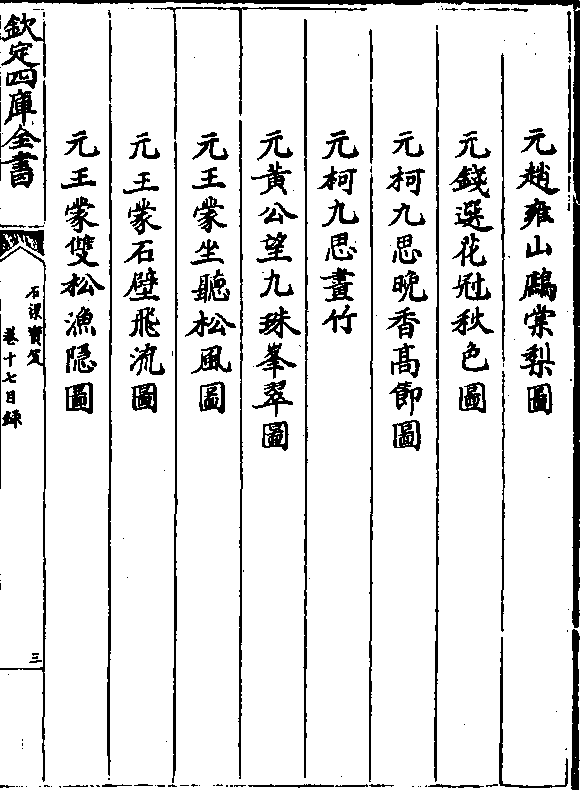 元趙雍山鷓棠梨圖
元錢選花冠秋色圖
元柯九思晚香高節圖
元柯九思畫竹
元黃公望九珠峯翠圖
元王蒙坐聽松風圖
元王蒙石壁飛流圖
元王蒙雙松漁隱圖
欽定四庫全書
石渠寶笈
卷十七目録
三